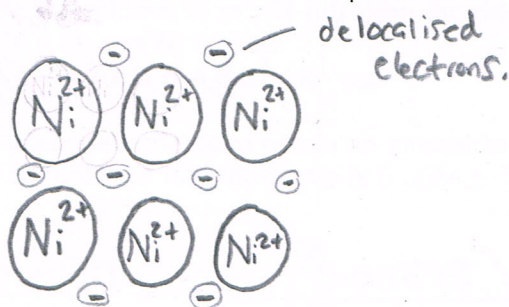 delocalised
electrons.
- -
Ni²⁺ Ni²⁺ Ni²⁺
- - - -
Ni²⁺ Ni²⁺ Ni²⁺
- -